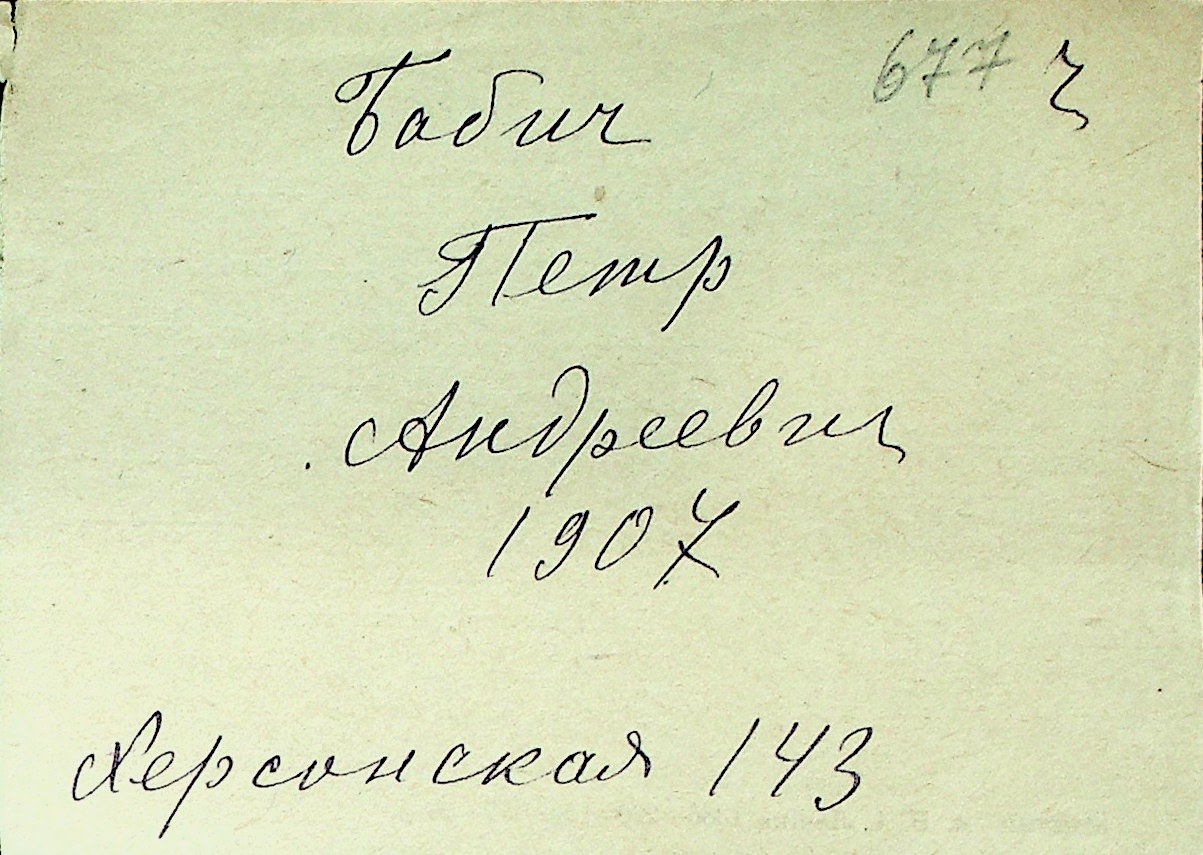 Бабич 677 ч
Петр
Андреевич
1907
Херсонская 143